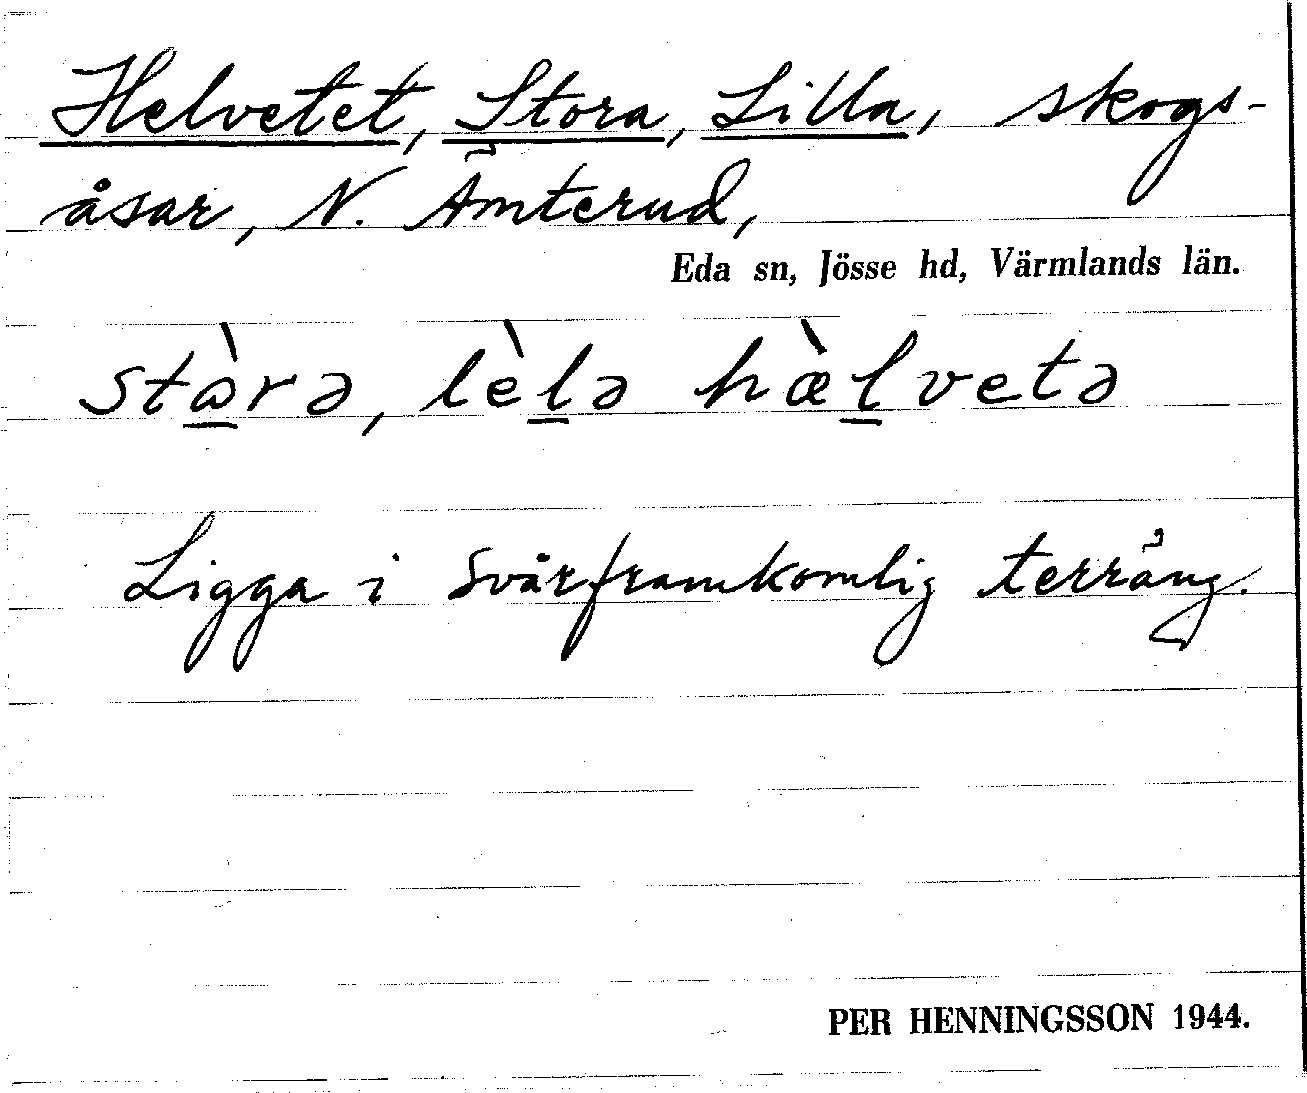 Helvetet, Stora, Lilla, skogs-
åsar, N. Ämterud,
Eda sn, Jösse hd, Värmlands län.
stɷ̀rə, lèlə hæ̀lvetə
Ligga i svårframkomlig terräng.
PER HENNINGSSON 1944.